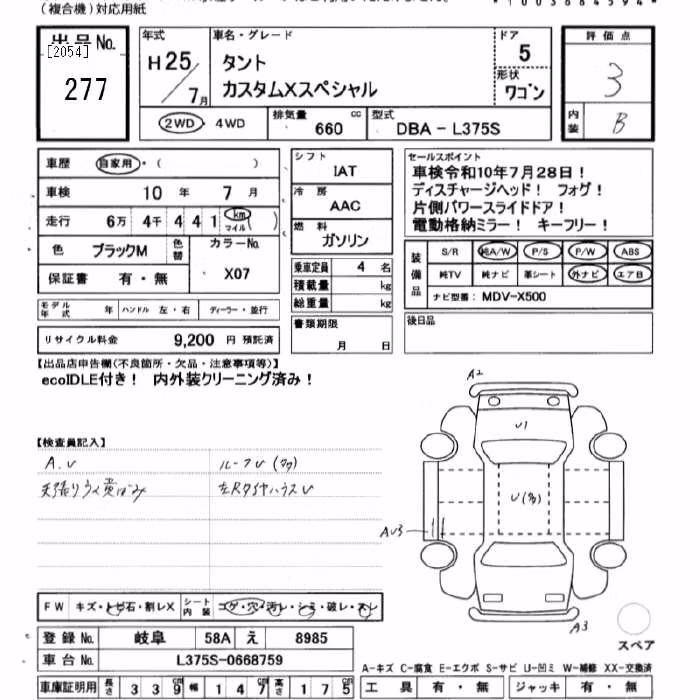 (複合機)対応用紙
出品No. [2054] 277
年式 H25/7月
車名・グレード タント
カスタムXスペシャル
ドア 5
形状 ワゴン
評価点 3
内装 B
2WD・4WD 排気量 660 cc 型式 DBA - L375S
車歴 自家用・( )
車検 10 年 7 月
走行 6万 4千 4 4 1 km マイル( )
色 ブラックM 色替 カラーNo. X07
保証書 有・無
モデル年式 年 ハンドル 左・右 ディーラー・並行
リサイクル料金 9,200 円 預託済
シフト IAT
冷房 AAC
燃料 ガソリン
乗車定員 4 名
積載量 kg
総重量 kg
書類期限 月 日
セールスポイント
車検令和10年7月28日!
ディスチャージヘッド! フォグ!
片側パワースライドドア!
電動格納ミラー! キーフリー!
装備品 S/R 純A/W P/S P/W ABS
純TV 純ナビ 革シート 外ナビ エアB
ナビ型番: MDV-X500
後日品
【出品店申告欄(不良箇所・欠品・注意事項等)】
ecoIDLE付き! 内外装クリーニング済み!
【検査員記入】
A.U ルーフU(多)
天張りうく黄ばみ 左RタイヤハウスU
A2
U1
U(多)
AU3
A3
スペア
FW キズ・トビ石・割レX シート内装 コゲ・穴・汚レ・シミ・破レ・スレ
登録No. 岐阜 58A え 8985
車台No. L375S-0668759
A-キズ C-腐食 E-エクボ S-サビ U-凹ミ W-補修 XX-交換済
車庫証明用 長さ 3 3 9 cm 幅 1 4 7 cm 高さ 1 7 5 cm
工具 有・無 ジャッキ 有・無